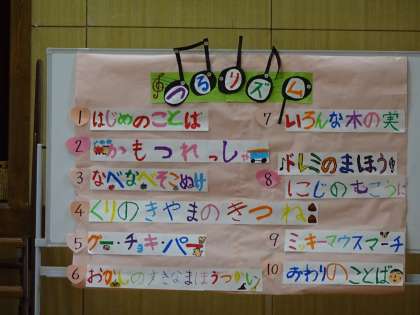 つるリズム
1 はじめのことば
2 かもつれっしゃ
3 なべなべそこぬけ
4 くりのきやまのきつね
5 グー・チョキ・パー
6 おかしのすきなまほうつかい
7 いろんな木の実
8 ドレミのまほう
にじのむこうに
9 ミッキーマウスマーチ
10 おわりのことば